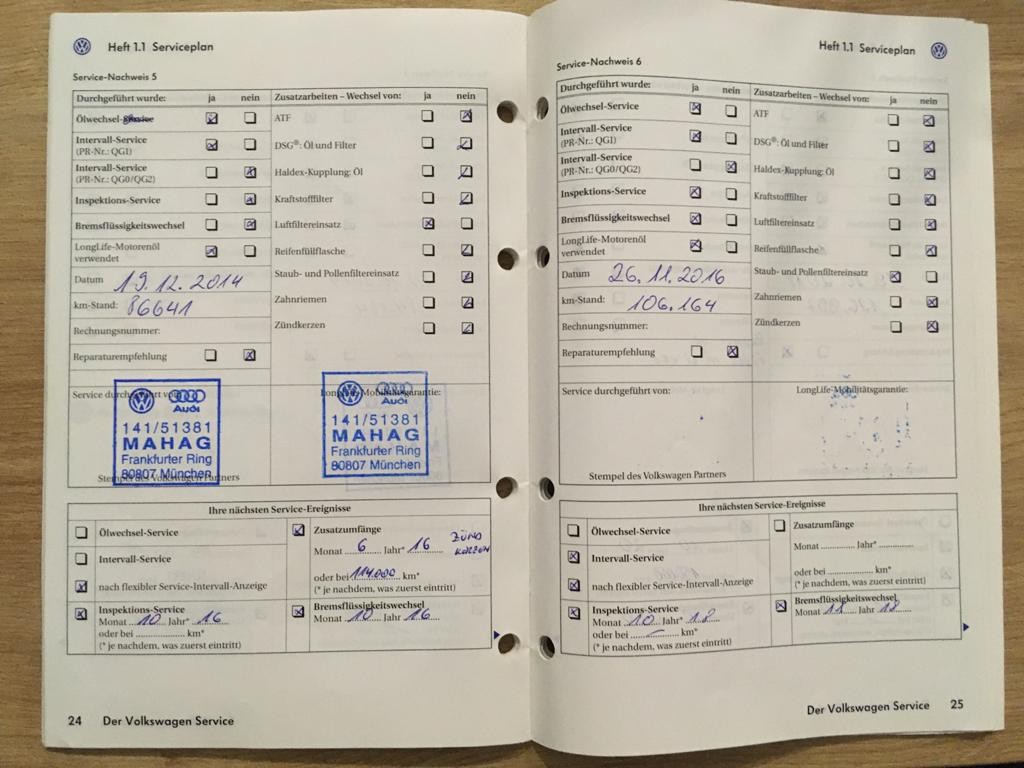 Heft 1.1 Serviceplan
Service-Nachweis 5
Durchgeführt wurde: ja nein Zusatzarbeiten – Wechsel von: ja nein
Ölwechsel-Service ATF
Intervall-Service
(PR-Nr.: QG1) DSG®: Öl und Filter
Intervall-Service
(PR-Nr.: QG0/QG2) Haldex-Kupplung: Öl
Inspektions-Service Kraftstofffilter
Bremsflüssigkeitswechsel Luftfiltereinsatz
LongLife-Motorenöl
verwendet Reifenfüllflasche
Datum 19.12.2014 Staub- und Pollenfiltereinsatz
km-Stand: 86641 Zahnriemen
Rechnungsnummer: Zündkerzen
Reparaturempfehlung
Service durchgeführt von: LongLife-Mobilitätsgarantie:
Audi Audi
141/51381 141/51381
MAHAG MAHAG
Frankfurter Ring Frankfurter Ring
80807 München 80807 München
Stempel des Volkswagen Partners
Ihre nächsten Service-Ereignisse
Ölwechsel-Service Zusatzumfänge
Monat 6 Jahr* 16 ZÜND KERZEN
Intervall-Service
oder bei 114.000 km*
nach flexibler Service-Intervall-Anzeige (* je nachdem, was zuerst eintritt)
Inspektions-Service Bremsflüssigkeitswechsel
Monat 10 Jahr* 16 Monat 10 Jahr 16
oder bei km*
(* je nachdem, was zuerst eintritt)
24 Der Volkswagen Service
Heft 1.1 Serviceplan
Service-Nachweis 6
Durchgeführt wurde: ja nein Zusatzarbeiten – Wechsel von: ja nein
Ölwechsel-Service ATF
Intervall-Service
(PR-Nr.: QG1) DSG®: Öl und Filter
Intervall-Service
(PR-Nr.: QG0/QG2) Haldex-Kupplung: Öl
Inspektions-Service Kraftstofffilter
Bremsflüssigkeitswechsel Luftfiltereinsatz
LongLife-Motorenöl
verwendet Reifenfüllflasche
Datum 26.11.2016 Staub- und Pollenfiltereinsatz
km-Stand: 106.164 Zahnriemen
Rechnungsnummer: Zündkerzen
Reparaturempfehlung
Service durchgeführt von: LongLife-Mobilitätsgarantie:
Stempel des Volkswagen Partners
Ihre nächsten Service-Ereignisse
Ölwechsel-Service Zusatzumfänge
Monat Jahr*
Intervall-Service
oder bei km*
nach flexibler Service-Intervall-Anzeige (* je nachdem, was zuerst eintritt)
Inspektions-Service Bremsflüssigkeitswechsel
Monat 10 Jahr* 18 Monat 11 Jahr 18
oder bei km*
(* je nachdem, was zuerst eintritt)
Der Volkswagen Service 25